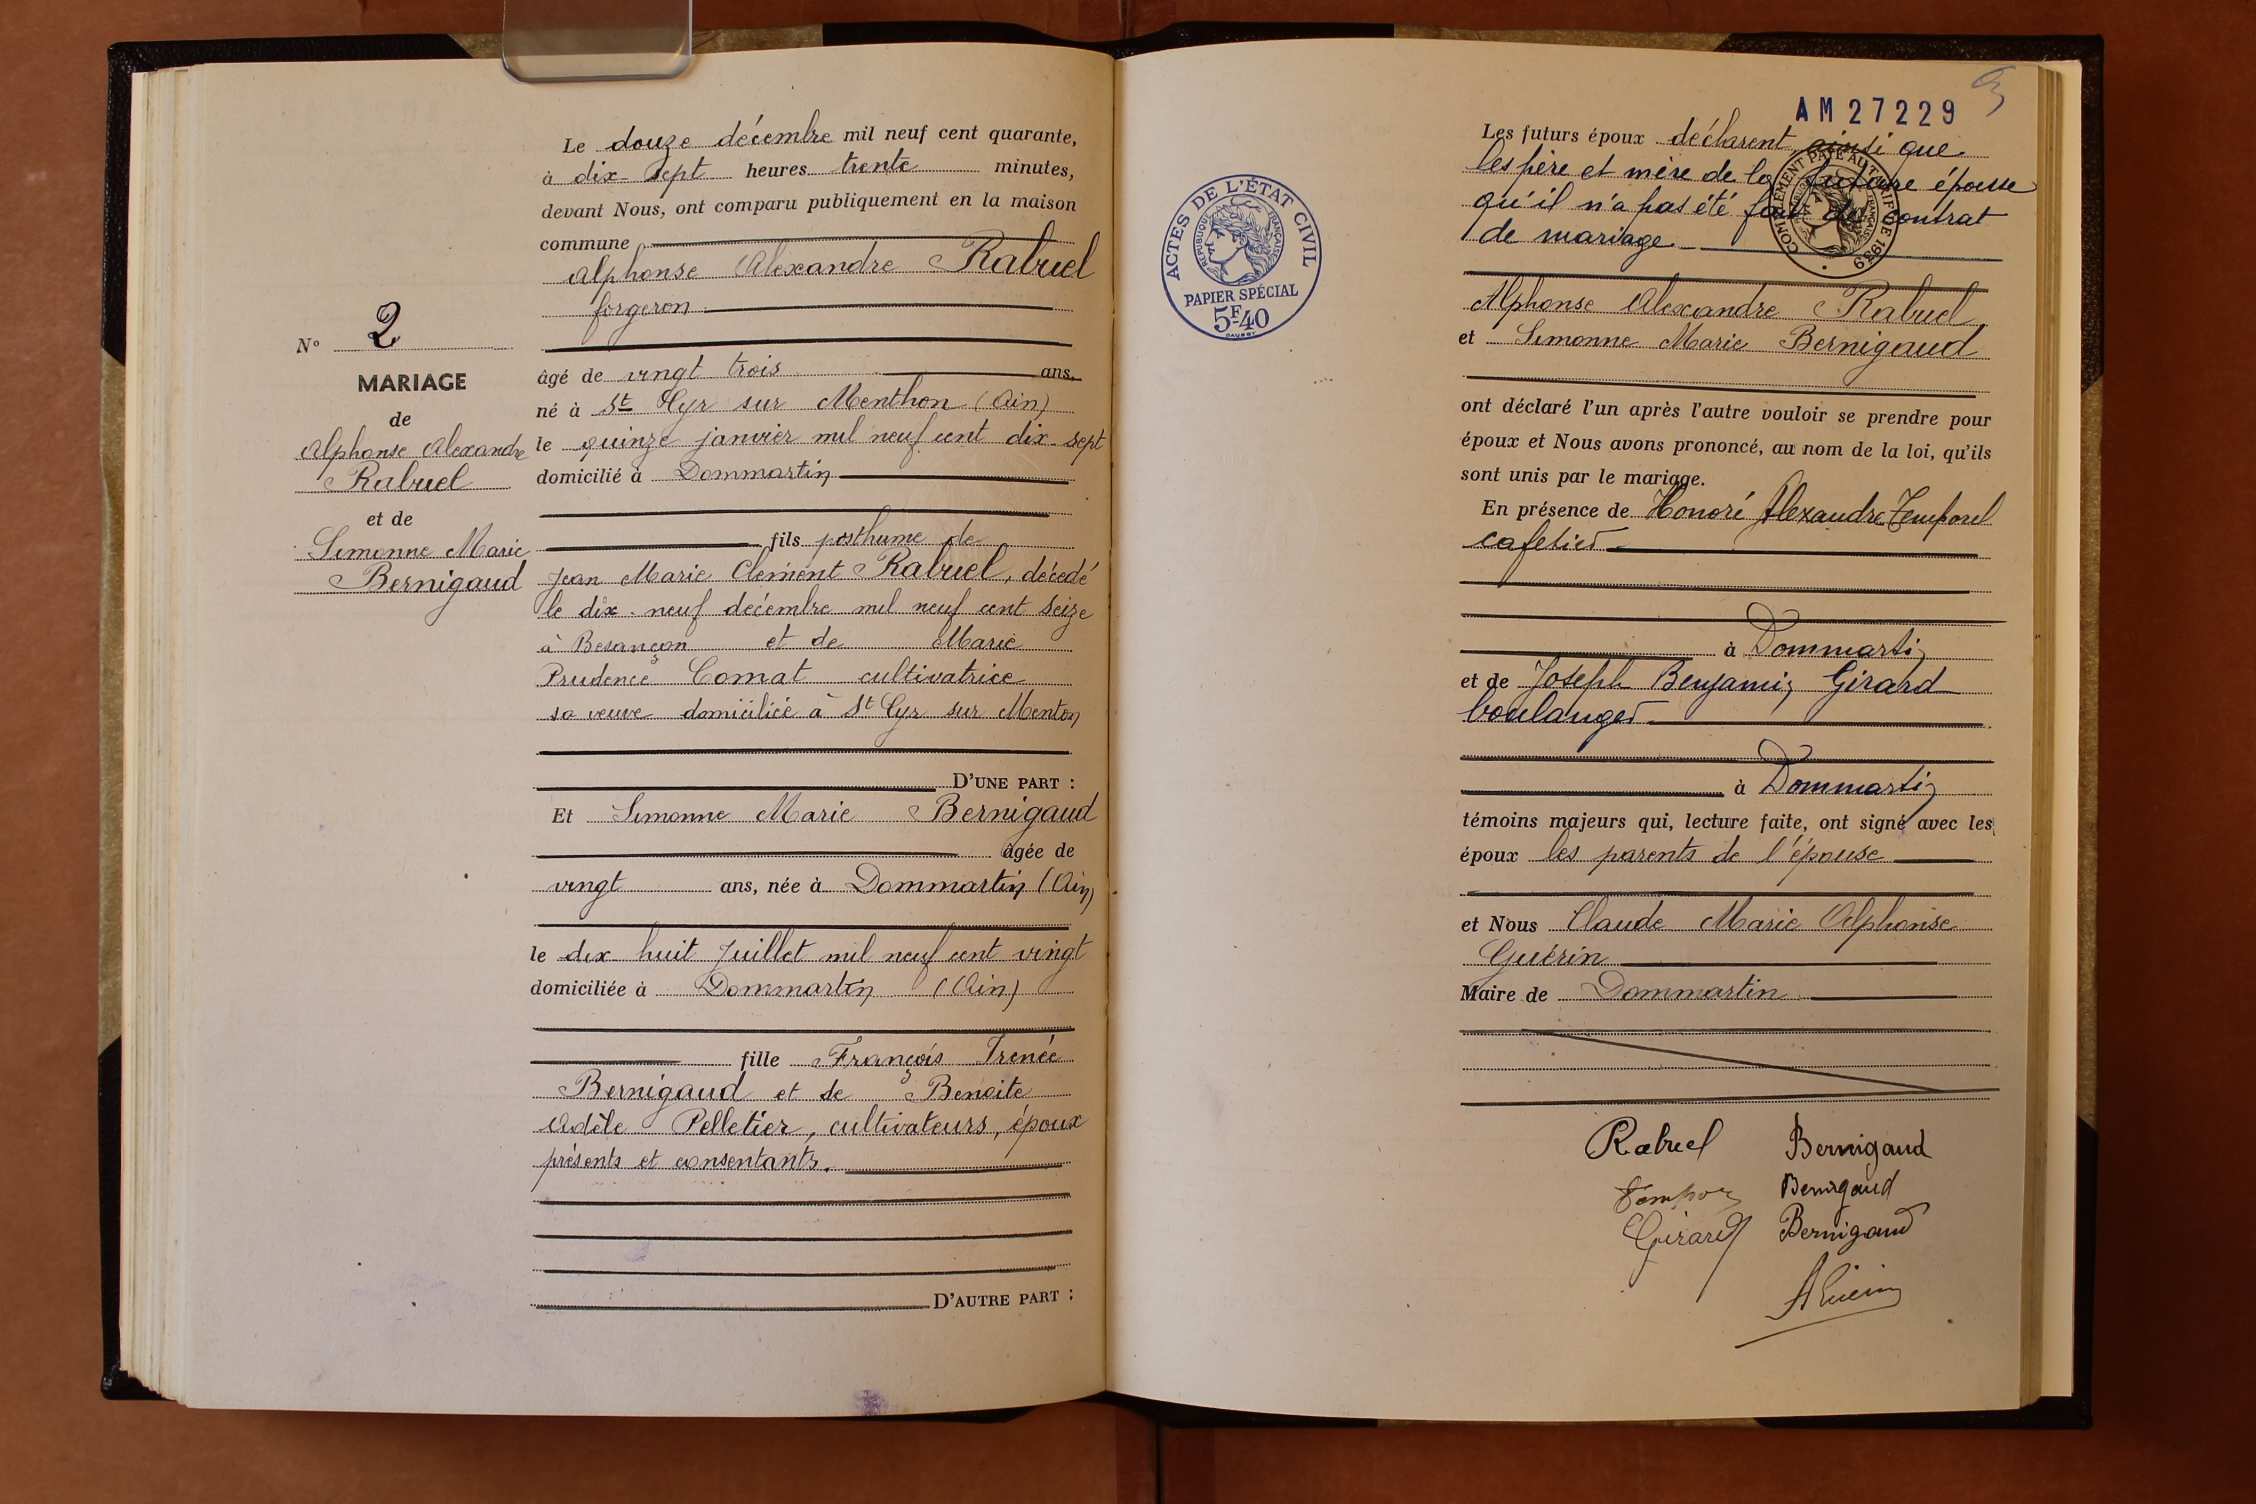 Le douze décembre mil neuf cent quarante,
à dix-sept heures trente minutes,
devant Nous, ont comparu publiquement en la maison
commune
Alphonse Alexandre Rabuel
forgeron
N° 2
MARIAGE
de
Alphonse Alexandre
Rabuel
et de
Simonne Marie
Bernigaud
âgé de vingt trois ans,
né à St Cyr sur Menthon (Ain)
le quinze janvier mil neuf cent dix-sept
domicilié à Dommartin
fils posthume de
Jean Marie Clément Rabuel, décédé
le dix-neuf décembre mil neuf cent seize
à Besançon et de Marie
Prudence Comat cultivatrice
sa veuve domiciliée à St Cyr sur Menton
D'UNE PART :
Et Simonne Marie Bernigaud
âgée de
vingt ans, née à Dommartin (Ain)
le dix huit Juillet mil neuf cent vingt
domiciliée à Dommartin (Ain)
fille François Irenée
Bernigaud et de Benoite
Adèle Pelletier, cultivateurs, époux
présents et consentants.
D'AUTRE PART :
ACTES DE L'ÉTAT CIVIL
RÉPUBLIQUE FRANÇAISE
PAPIER SPÉCIAL
5F40
AM27229
COMPLÉMENT PAYÉ AU TARIF DE 1939
Les futurs époux déclarent, ainsi que
les père et mère de la future épouse
qu'il n'a pas été fait de contrat
de mariage
Alphonse Alexandre Rabuel
et Simonne Marie Bernigaud
ont déclaré l'un après l'autre vouloir se prendre pour
époux et Nous avons prononcé, au nom de la loi, qu'ils
sont unis par le mariage.
En présence de Honoré Alexandre Temporel
cafetier
à Dommartin
et de Joseph Benjamin Girard
boulanger
à Dommartin
témoins majeurs qui, lecture faite, ont signé avec les
époux les parents de l'épouse
et Nous Claude Marie Alphonse
Guérin
Maire de Dommartin
Rabuel Bernigaud
Bernigaud
Girard Bernigaud